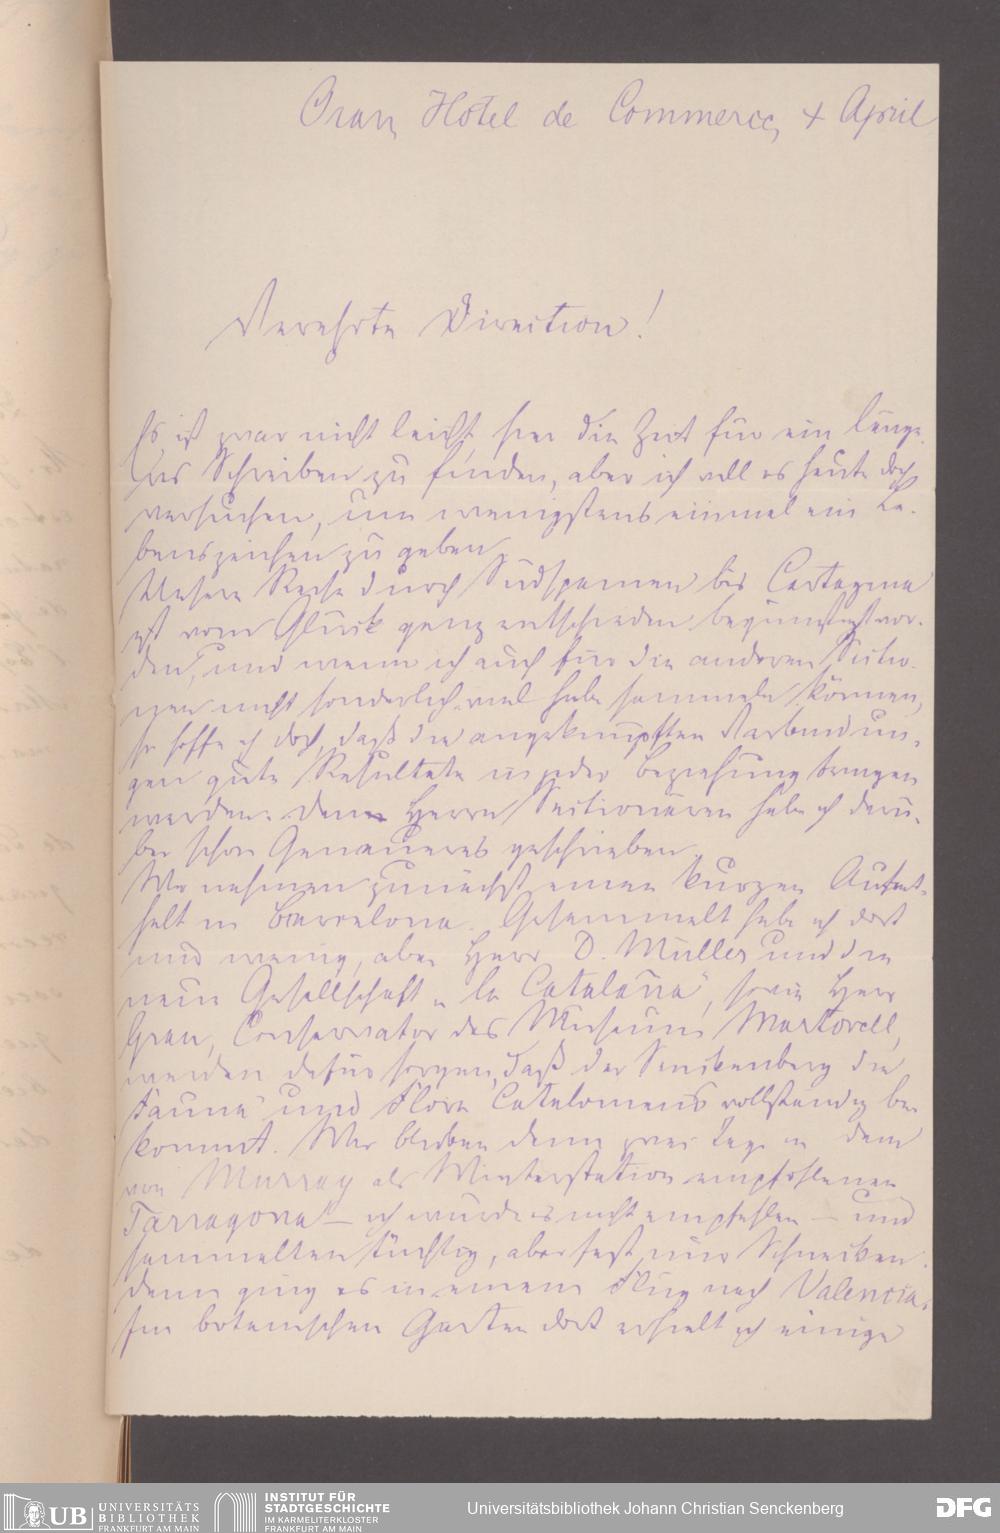 Oran, Hotel de Commerce, 4 April
Verehrte Direction!
Es ist zwar nicht leicht, hier die Zeit für ein länge-
res Schreiben zu finden, aber ich will es heute doch
versuchen, um wenigstens einmal ein Le-
benszeichen zu geben.
Unsere Reise durch Südspanien bis Cartagena
ist vom Glück ganz entschieden begünstigt wor-
den, und wenn ich auch für die anderen Sectio-
nen nicht sonderlich viel habe sammeln können,
so hoffe ich doch, daß die angeknüpften Verbindun-
gen gute Resultate in jeder Beziehung bringen
werden. Den Herren Sectionären habe ich darü-
ber schon Genaueres geschrieben.
Wir nahmen zunächst einen kurzen Aufent-
halt in Barcelona. Gesammelt habe ich dort
nur wenig, aber Herr D. Müller und die
neue Gesellschaft "la Catalana", sowie Herr
Grau, Conservator des Museums Martorell,
werden dafür sorgen, daß der Senckenberg die
Fauna und Flora Cataloniens vollständig be-
kommt. Wir blieben dann zwei Tage in dem
von Murray als Winterstation empfohlenen
Tarragona – ich würde es nicht empfehlen – und
sammelten tüchtig, aber fast nur Schnecken.
Dann ging es in einem Flug nach Valencia.
Im botanischen Garten dort erhielt ich einige
UB UNIVERSITÄTS
BIBLIOTHEK
FRANKFURT AM MAIN
INSTITUT FÜR
STADTGESCHICHTE
IM KARMELITERKLOSTER
FRANKFURT AM MAIN
Universitätsbibliothek Johann Christian Senckenberg
DFG